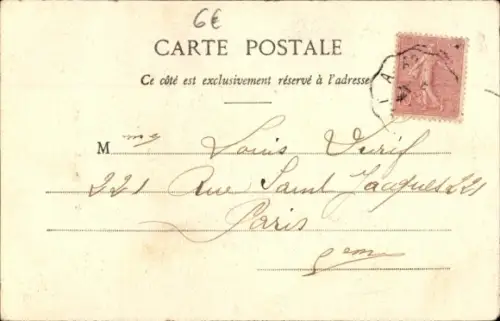 6€
CARTE POSTALE
Ce côté est exclusivement réservé à l'adresse
Mme Louis Durif
221 Rue Saint Jacques 221
Paris
5em